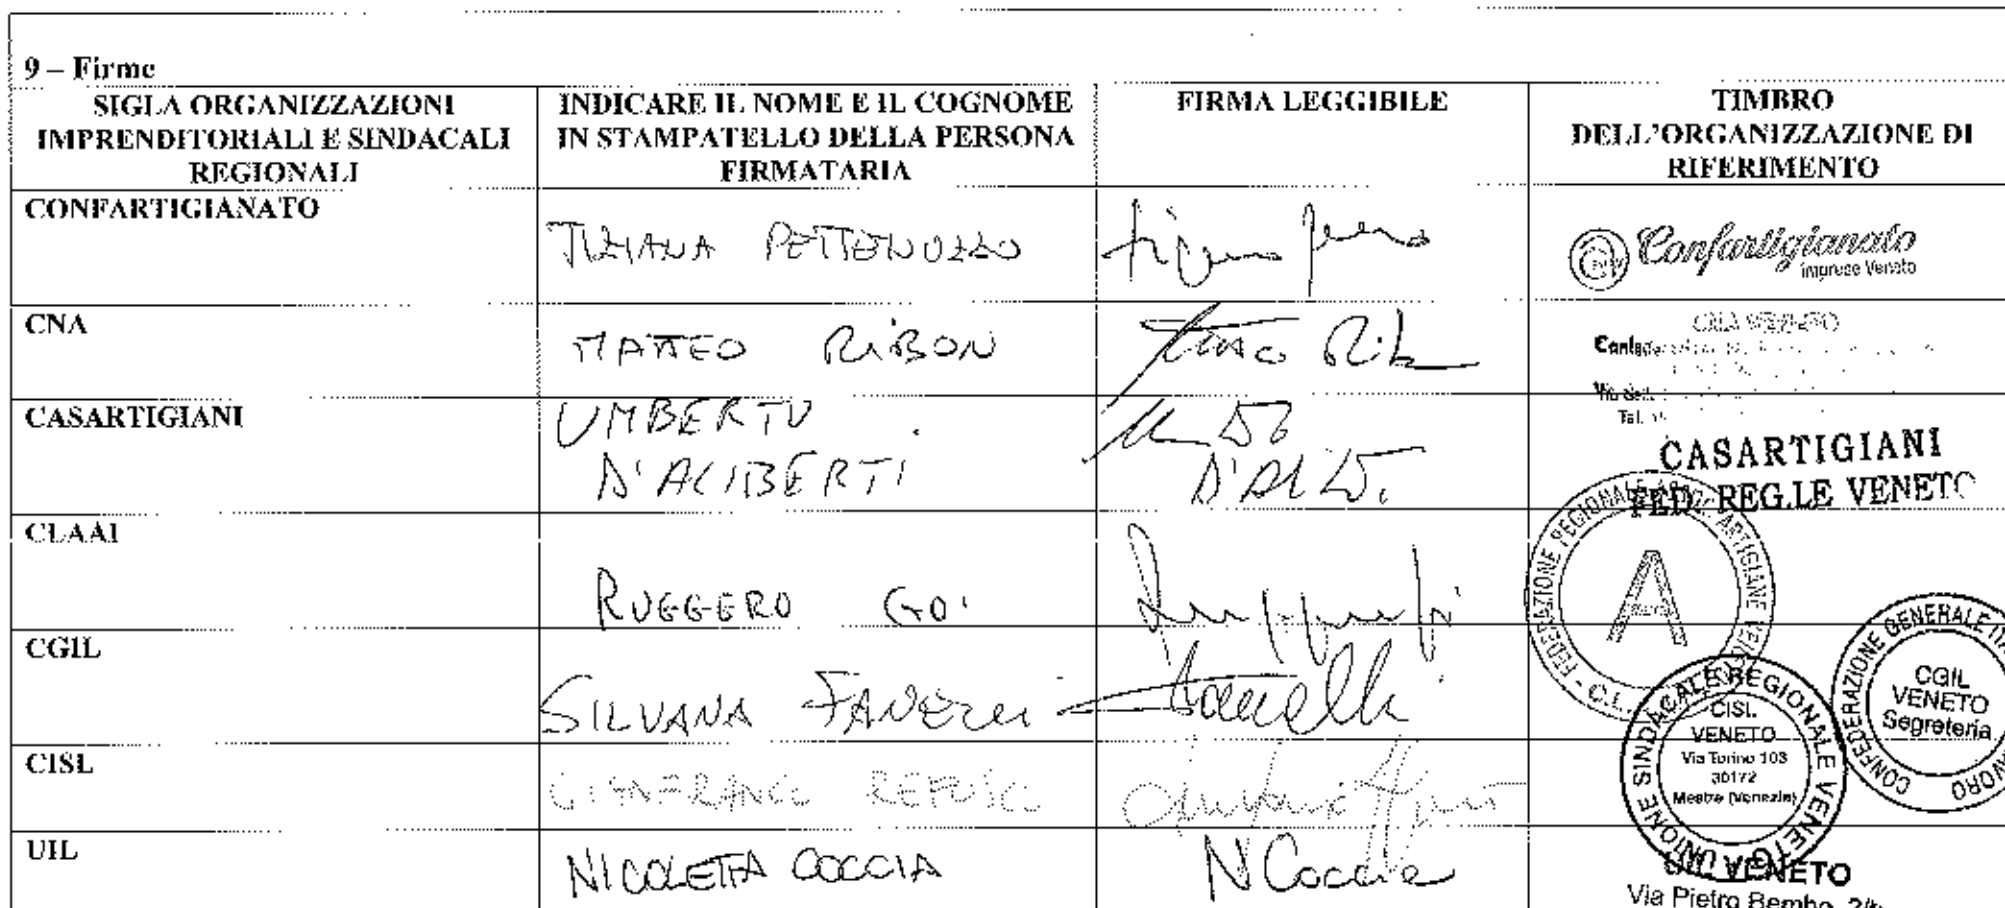 9 – Firme
SIGLA ORGANIZZAZIONI
IMPRENDITORIALI E SINDACALI
REGIONALI
INDICARE IL NOME E IL COGNOME
IN STAMPATELLO DELLA PERSONA
FIRMATARIA
FIRMA LEGGIBILE
TIMBRO
DELL'ORGANIZZAZIONE DI
RIFERIMENTO
CONFARTIGIANATO
TIZIANA PETTENUZZO
Confartigianato
imprese Veneto
CNA
MATTEO RIBON
CNA VENETO
Tel.
CASARTIGIANI
UMBERTO
D'ALIBERTI
CASARTIGIANI
FED. REG.LE VENETO
CLAAI
RUGGERO GO'
FEDERAZIONE REGIONALE ARTIGIANE
A
CGIL
SILVANA FANELLI
Fanelli
CONFEDERAZIONE GENERALE LAVORO
CGIL
VENETO
Segreteria
CISL
GIANFRANCO REFOSCO
UNIONE SINDACALE REGIONALE VENETO
CISL
VENETO
Via Torino 103
30172
Mestre (Venezia)
UIL
NICOLETTA COCCIA
N Coccia
UIL VENETO
Via Pietro Bembo